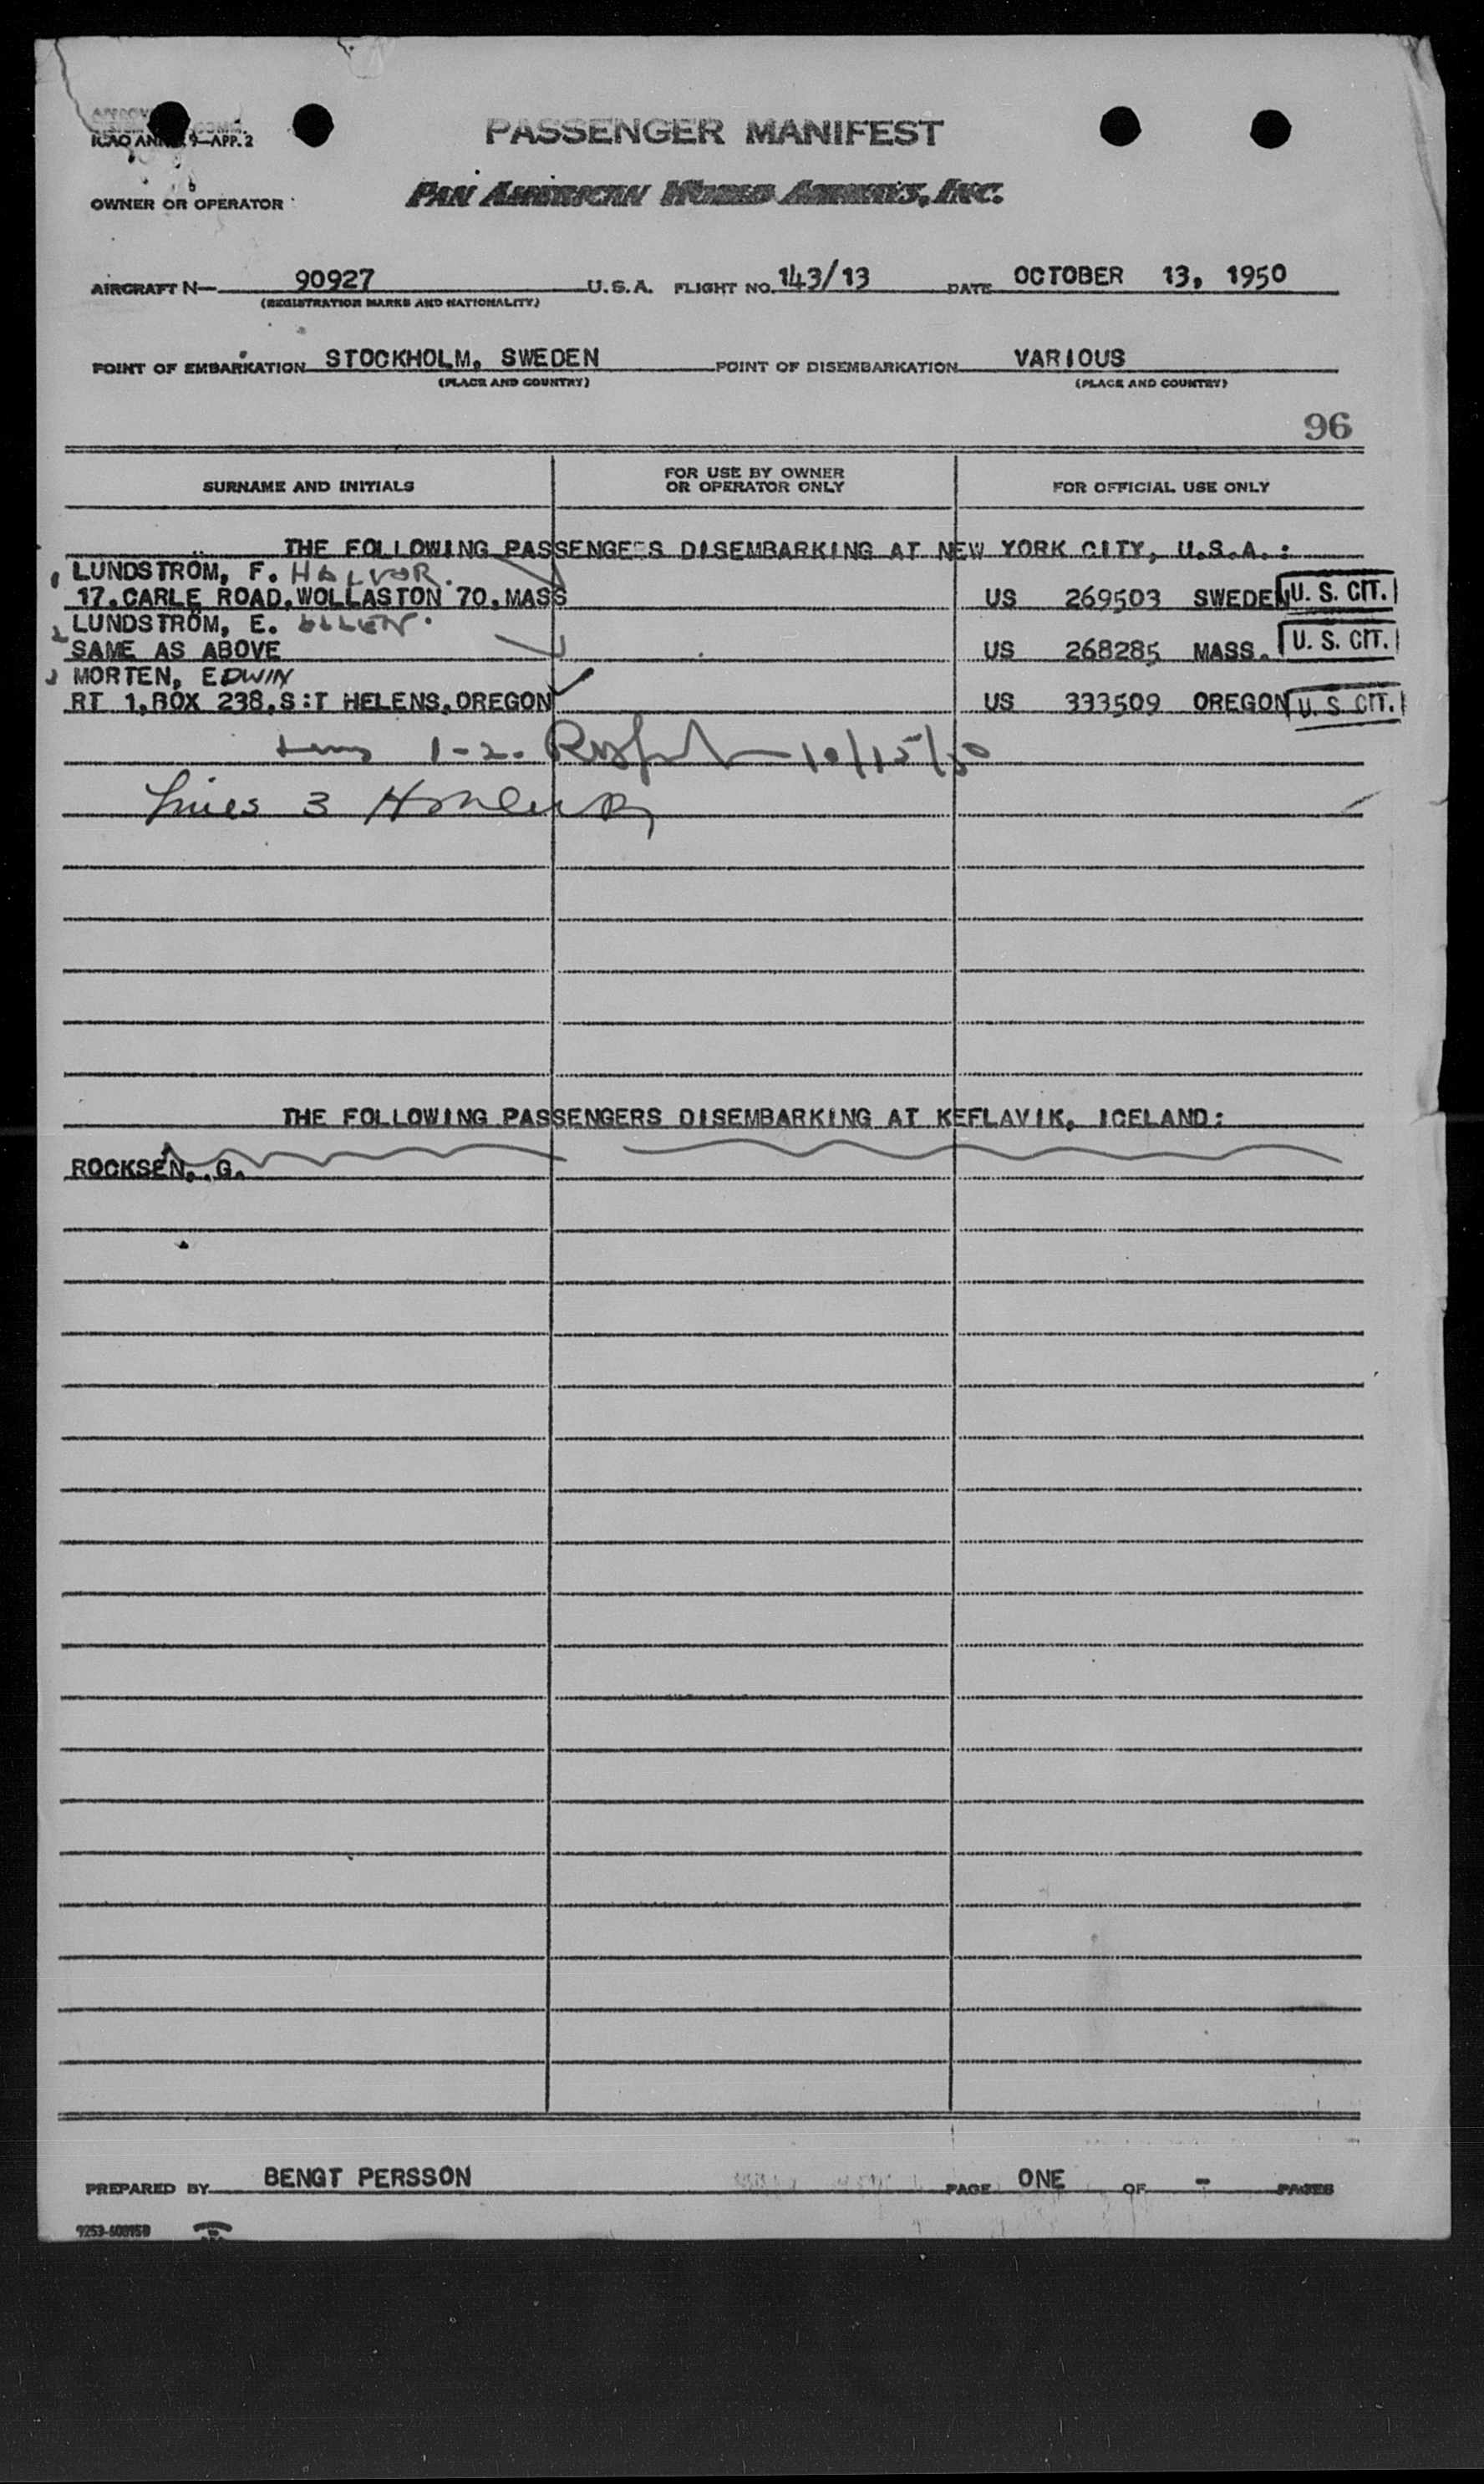 ICAO ANNEX 9—APP. 2
PASSENGER MANIFEST
OWNER OR OPERATOR
PAN AMERICAN WORLD AIRWAYS, INC.
AIRCRAFT N— 90927 U.S.A. FLIGHT NO. 143/13 DATE OCTOBER 13, 1950
(REGISTRATION MARKS AND NATIONALITY)
POINT OF EMBARKATION STOCKHOLM, SWEDEN POINT OF DISEMBARKATION VARIOUS
(PLACE AND COUNTRY) (PLACE AND COUNTRY)
96
SURNAME AND INITIALS FOR USE BY OWNER OR OPERATOR ONLY FOR OFFICIAL USE ONLY
THE FOLLOWING PASSENGERS DISEMBARKING AT NEW YORK CITY, U.S.A.:
1 LUNDSTRÖM, F. HALVOR.
17.CARLE ROAD.WOLLASTON 70.MASS US 269503 SWEDEN U. S. CIT.
2 LUNDSTRÖM, E. ELLEN.
SAME AS ABOVE US 268285 MASS. U. S. CIT.
3 MORTEN, EDWIN
RT 1.BOX 238.S:T HELENS.OREGON US 333509 OREGON U. S. CIT.
1-2. 10/15/50
Lines 3
THE FOLLOWING PASSENGERS DISEMBARKING AT KEFLAVIK, ICELAND:
ROCKSEN, G.
PREPARED BY BENGT PERSSON PAGE ONE OF - PAGES